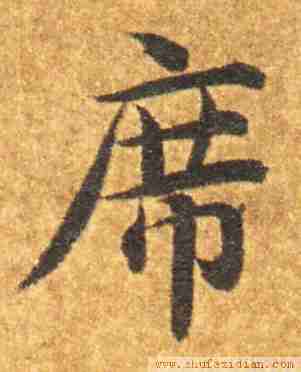 席
www.shufazidian.com